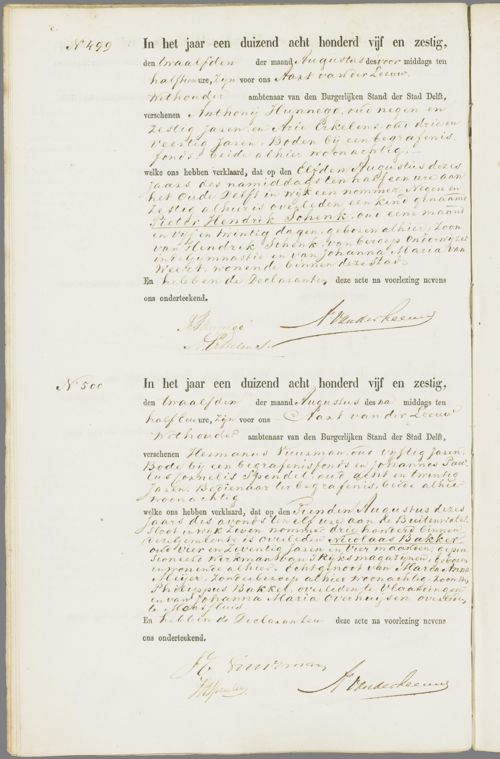 No 499
In het jaar een duizend acht honderd vijf en zestig,
den twaalfden der maand Augustus des voor middags ten
half tien ure, zijn voor ons Aart van der Leeuw
Wethouder ambtenaar van den Burgerlijken Stand der Stad Delft,
verschenen Anthony Hunnego, oud negen en
zestig jaren, en Arie Erkelens, oud drie en
veertig jaren, Boden bij een begrafenis
fonds, beide alhier woonachtig,
welke ons hebben verklaard, dat op den Elfden Augustus dezes
jaars des namiddags ten half een ure aan
het Oude Delft in wijk een nommer Negen en
zestig alhier is overleden een kind genaamd
Pieter Hendrik Schenk, oud eene maand
en vijf en twintig dagen, geboren alhier, Zoon
van Hendrik Schenk, van beroep Onderwijzer
in de Gymnastie en van Johanna Maria van
Weert, wonende binnen deze Stad.
En hebben de Declaranten deze acte na voorlezing nevens
ons onderteekend.
A Hunnego
A. Erkelens.
A van der Leeuw
No 500
In het jaar een duizend acht honderd vijf en zestig,
den twaalfden der maand Augustus des na middags ten
half een ure, zijn voor ons Aart van der Leeuw
Wethouder ambtenaar van den Burgerlijken Stand der Stad Delft,
verschenen Hermanus Vuurman, oud vijftig jaren,
Bode bij een begrafenisfonds en Johannes Pau
lus Kornelis Spendel, oud acht en twintig
jaren, Bedienaar ter begrafenis, beide alhier
woonachtig
welke ons hebben verklaard, dat op den Tienden Augustus dezes
jaars des avonds ten elf ure aan de Buitenwater
sloot in wijk zeven nommer drie honderd binnen
deze gemeente is overleden Nicolaas Bakker
oud vier en zeventig jaren en vier maanden, gepen
sioneerd Werkman van 's Rijks magazijnen, geboren
en wonende alhier. Echtgenoot van Maria Anna
Meijer, zonder beroep alhier woonachtig. Zoon van
Philippus Bakker, overleden te Vlaardingen
en van Johanna Maria Overheijsen overleden
te Maassluis.
En hebben de Declaranten deze acte na voorlezing nevens
ons onderteekend.
H Vuurman
A van der Leeuw